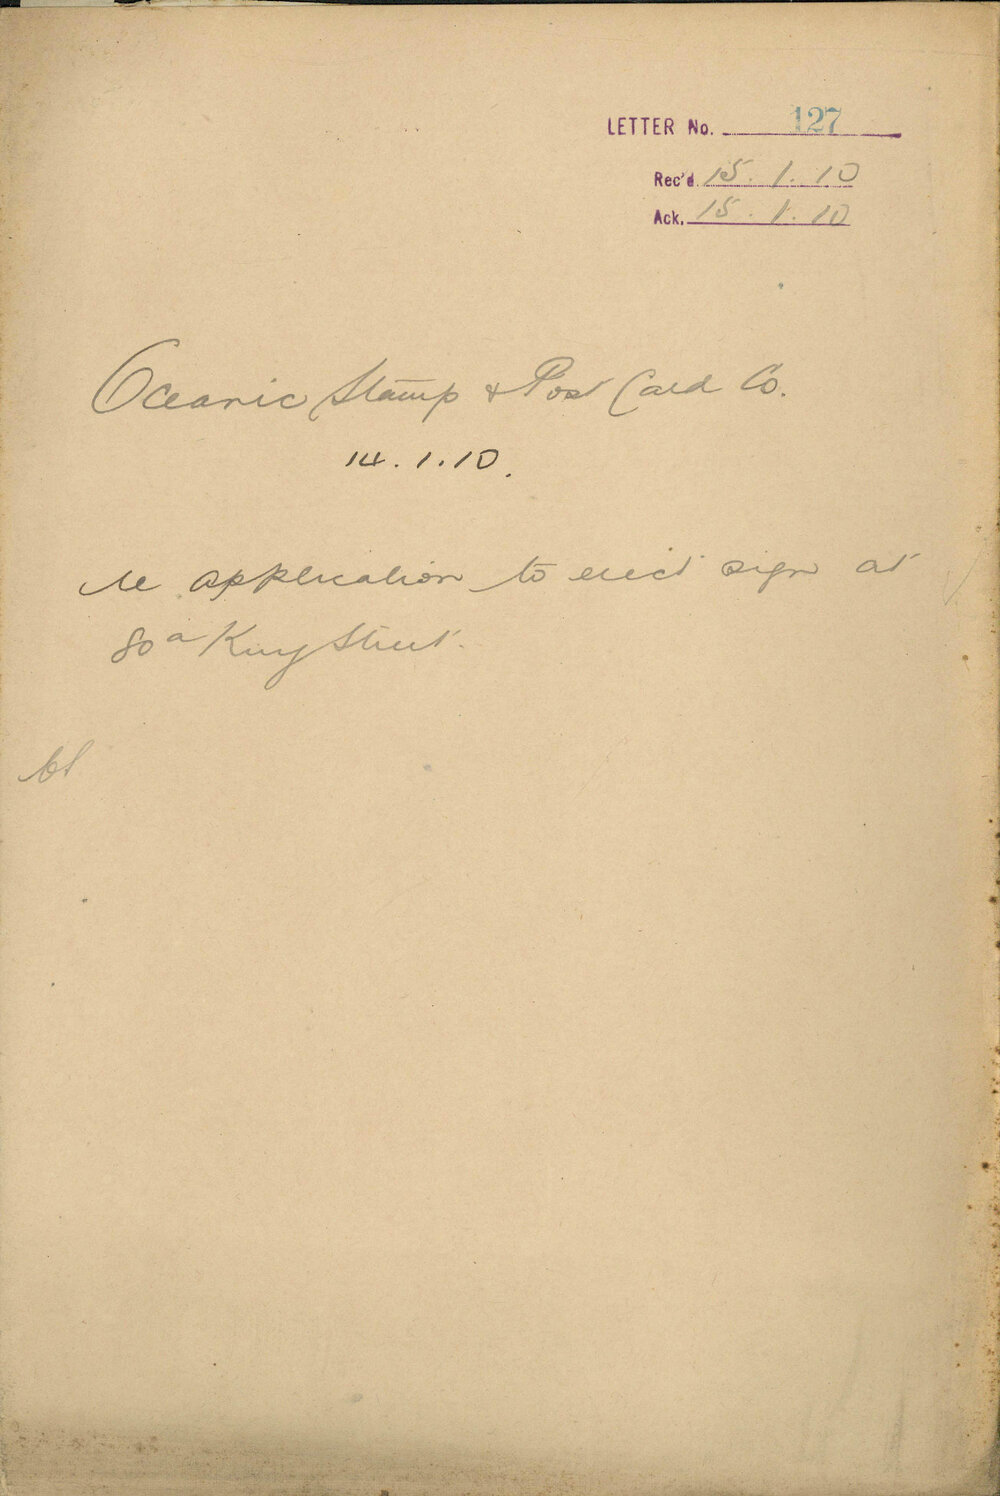 LETTER No. 127
Rec'd. 15.1.10
Ack. 15.1.10
Oceanic Stamp & Post Card Co.
14.1.10.
re application to erect sign at
80a King Street.